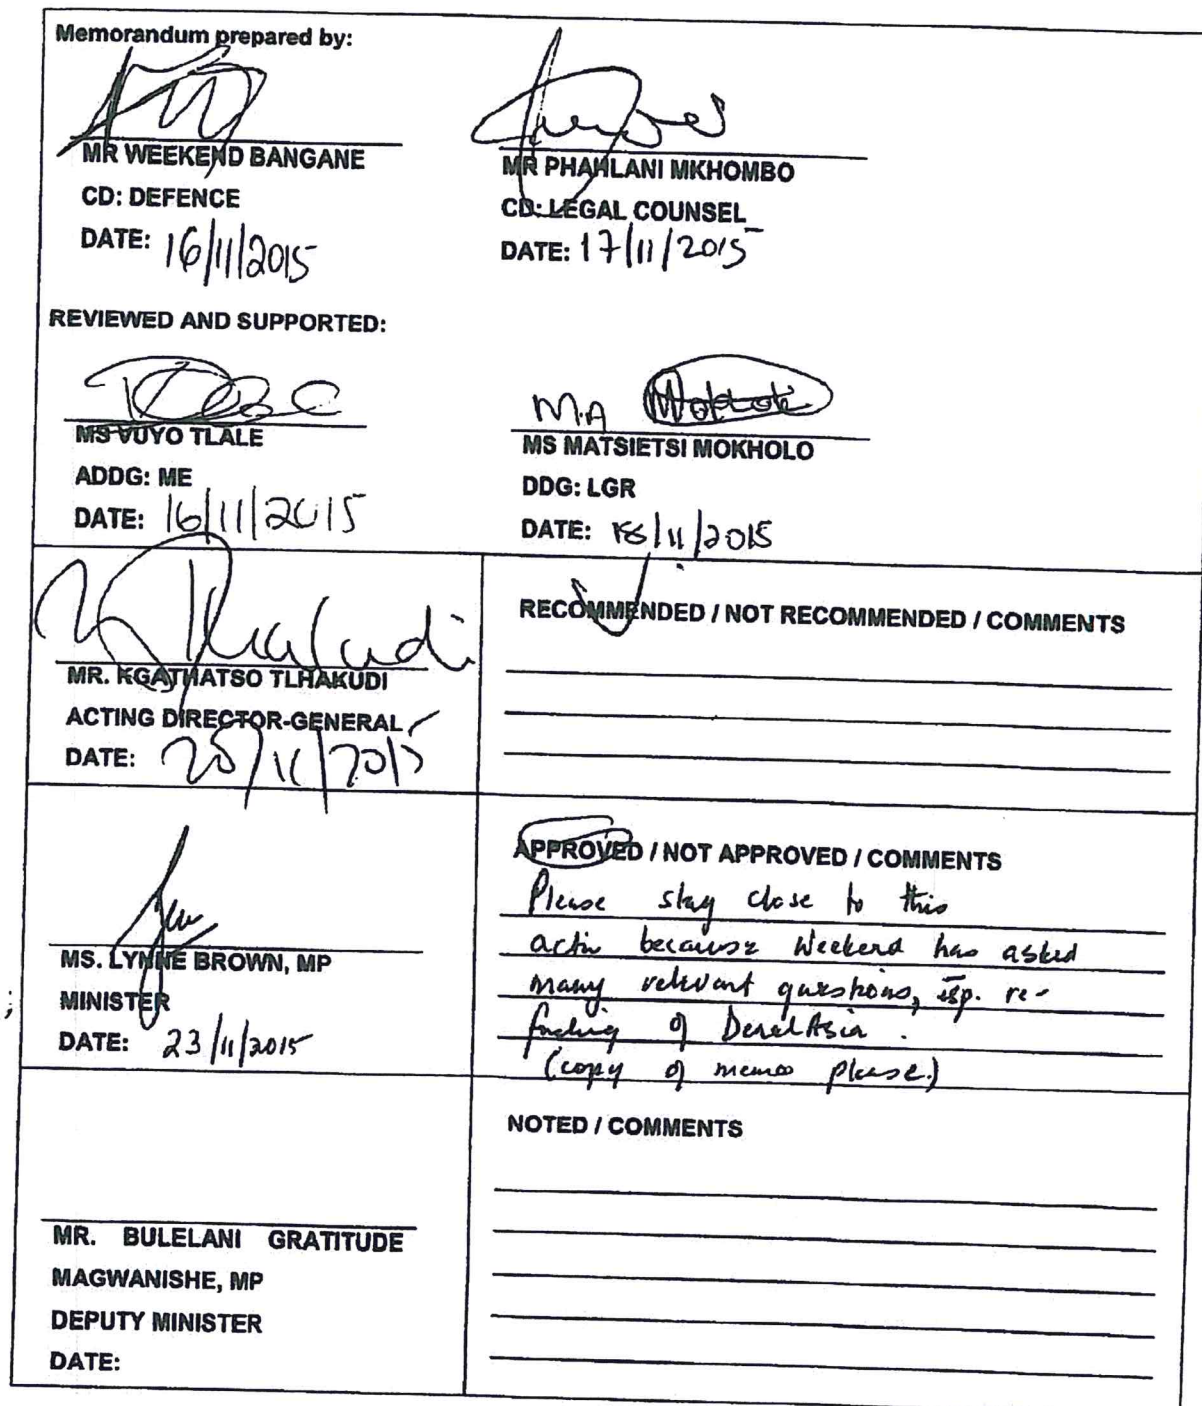 Memorandum prepared by:
MR WEEKEND BANGANE
CD: DEFENCE
DATE: 16/11/2015
MR PHAHLANI MKHOMBO
CD: LEGAL COUNSEL
DATE: 17/11/2015
REVIEWED AND SUPPORTED:
MS VUYO TLALE
ADDG: ME
DATE: 16/11/2015
M.A
MS MATSIETSI MOKHOLO
DDG: LGR
DATE: 18/11/2015
Tlhakudi
MR. KGATHATSO TLHAKUDI
ACTING DIRECTOR-GENERAL
DATE: 20/11/2015
RECOMMENDED / NOT RECOMMENDED / COMMENTS
MS. LYNNE BROWN, MP
MINISTER
DATE: 23/11/2015
APPROVED / NOT APPROVED / COMMENTS
Please stay close to this
because Weekend has asked
many relevant questions, esp. re-
of Denel Asia.
(copy of memo please.)
MR. BULELANI GRATITUDE
MAGWANISHE, MP
DEPUTY MINISTER
DATE:
NOTED / COMMENTS